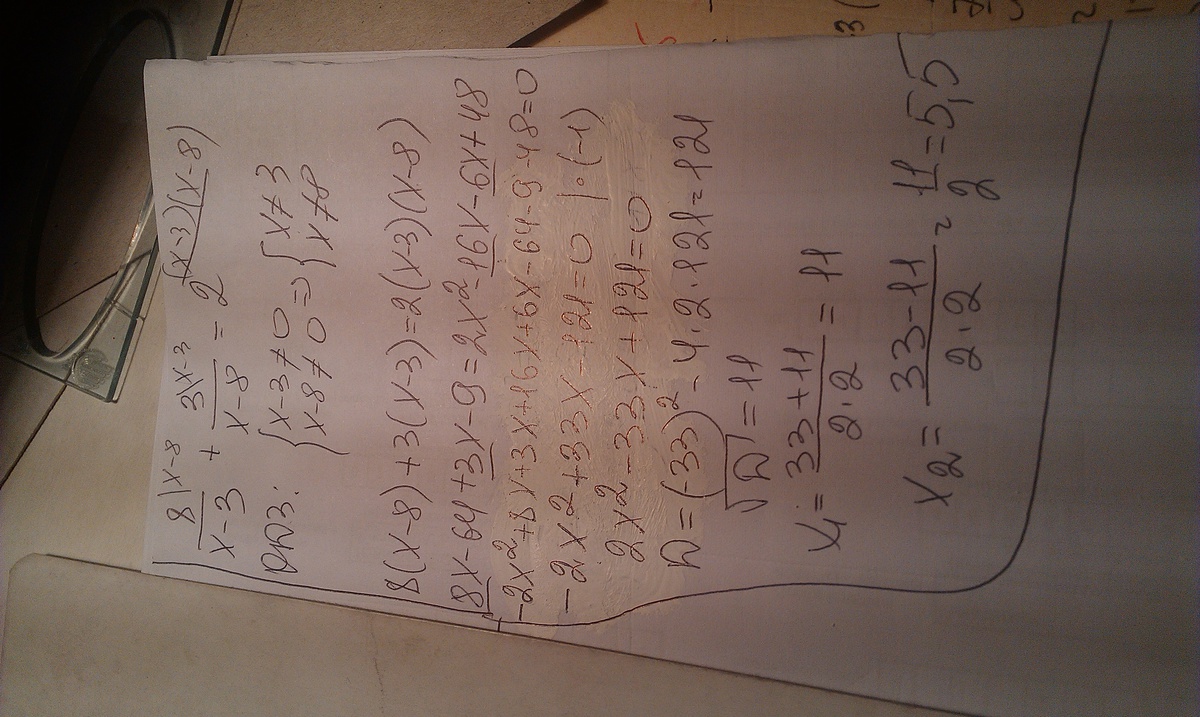 8 |x-8 / x-3 + 3 |x-3 / x-8 = 2 |(x-3)(x-8)
ОДЗ: { x-3≠0 => { x≠3
{ x-8≠0 { x≠8
8(x-8)+3(x-3)=2(x-3)(x-8)
8x-64+3x-9=2x²-16x-6x+48
-2x²+8x+3x+16x+6x-64-9-48=0
-2x²+33x-121=0 |·(-1)
2x²-33x+121=0
D=(-33)²-4·2·121=121
√D=11
x₁= 33+11 / 2·2 = 11
x₂= 33-11 / 2·2 = 11 / 2 = 5,5